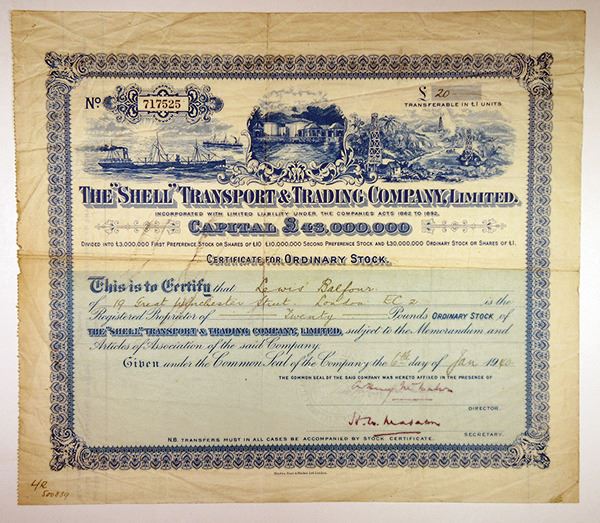 £ 20
No 717525
TRANSFERABLE IN £1 UNITS
THE "SHELL" TRANSPORT & TRADING COMPANY, LIMITED.
INCORPORATED WITH LIMITED LIABILITY UNDER THE COMPANIES ACTS 1862 TO 1892.
CAPITAL £43,000,000
DIVIDED INTO £3,000,000 FIRST PREFERENCE STOCK OR SHARES OF £10 £10,000,000 SECOND PREFERENCE STOCK AND £30,000,000 ORDINARY STOCK OR SHARES OF £1.
CERTIFICATE FOR ORDINARY STOCK.
This is to Certify that Lewis Balfour
of 19 Great Winchester Street, London EC 2 is the
Registered Proprietor of Twenty Pounds ORDINARY STOCK of
THE "SHELL" TRANSPORT & TRADING COMPANY, LIMITED, subject to the Memorandum and
Articles of Association of the said Company.
Given under the Common Seal of the Company the 6th day of Jan 1940
THE COMMON SEAL OF THE SAID COMPANY WAS HERETO AFFIXED IN THE PRESENCE OF
DIRECTOR.
SECRETARY.
N.B. TRANSFERS MUST IN ALL CASES BE ACCOMPANIED BY STOCK CERTIFICATE.
500839